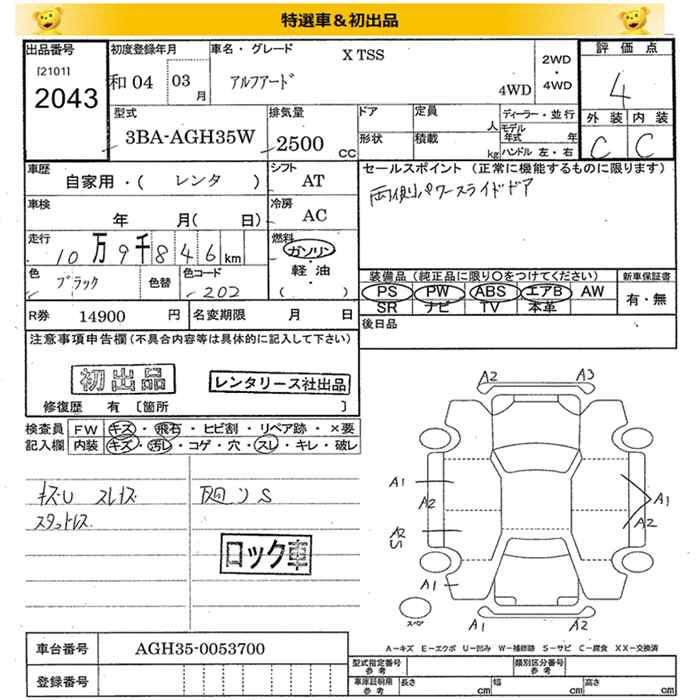 特選車＆初出品
出品番号
[2101]
2043
初度登録年月
和04 03月
車名・グレード
X TSS
アルファード
4WD
2WD
・
4WD
評価点
4
外装 内装
C C
型式
3BA-AGH35W
排気量
2500 cc
ドア
定員 人
形状
積載 kg
ディーラー・並行
モデル年式 年
ハンドル 左・右
車歴
自家用・( レンタ )
シフト
AT
車検
年 月( 日)
冷房
AC
走行
10万9千846km
燃料
ガソリン
・
軽・油
( ・ )
色
ブラック
色替
色コード
202
セールスポイント (正常に機能するものに限ります)
両側パワースライドドア
装備品(純正品に限り〇をつけてください)
新車保証書
PS PW ABS エアB AW
SR ナビ TV 本革
有・無
R券 14900 円
名変期限 月 日
後日品
注意事項申告欄(不具合内容等は具体的に記入して下さい)
初出品
レンタリース社出品
修復歴 有 [箇所 ]
検査員記入欄
FW キズ・飛石・ヒビ割・リペア跡・×要
内装 キズ・汚レ・コゲ・穴・スレ・キレ・破レ
キズU スレキズ
スタットレス
廻リS
ロック車
A2 A3
A1
A2
A1
A2
A2
U5
A1
スペア
A1 A2
車台番号
AGH35-0053700
登録番号
A－キズ E－エクボ U－凹み W－補修跡 S－サビ C－腐食 XX－交換済
型式指定番号
参考
類別区分番号
参考
車庫証明用
参考
長さ cm
幅 cm
高さ cm